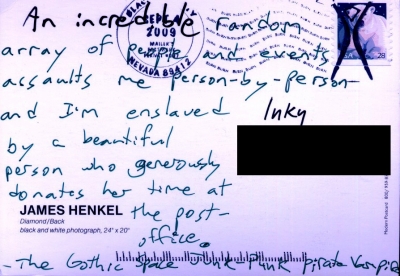 An incredible random
array of people and events
assaults me person-by-person
and I'm enslaved
by a beautiful
person who generously
donates her time at
the post-
office.
- The Gothic Space Junk Punk Pirate Vampire
Inky
2009
NEVADA 89412
28
JAMES HENKEL
Diamond/Back
black and white photograph, 24" x 20"
Modern Postcard